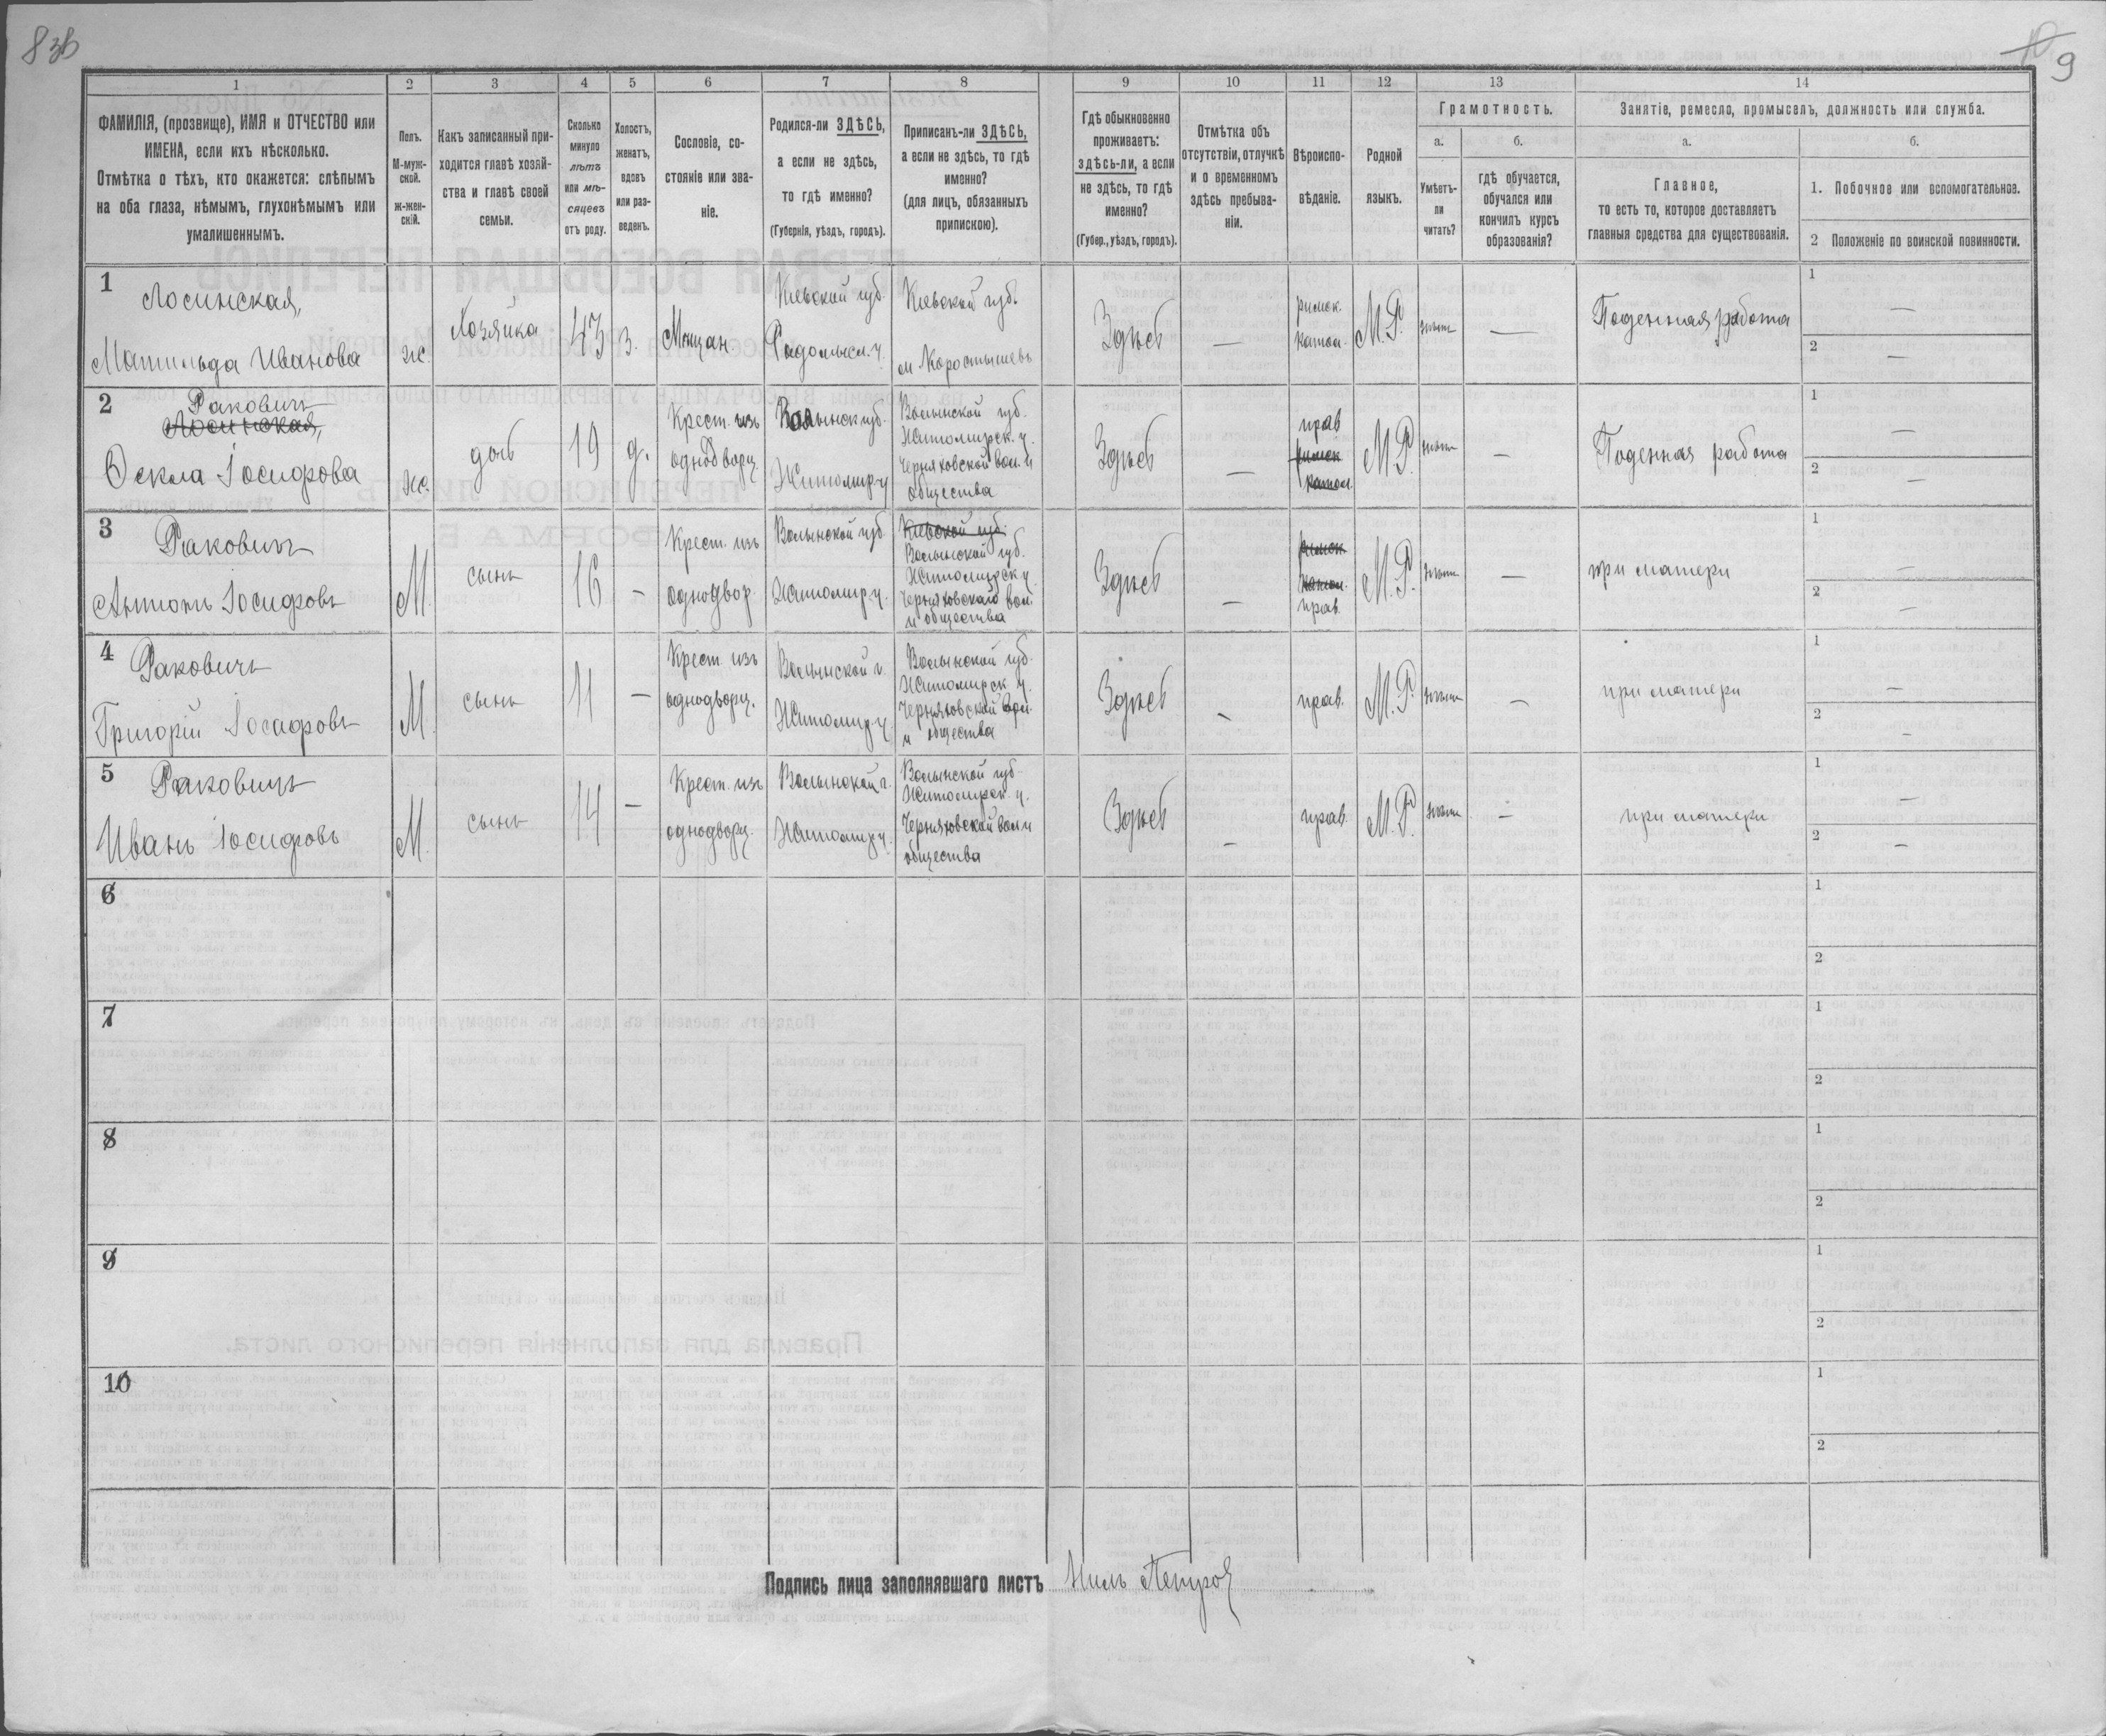 83б
10
9
1 2 3 4 5 6 7 8 9 10 11 12 13 14
ФАМИЛІЯ, (прозвище), ИМЯ и ОТЧЕСТВО или
ИМЕНА, если ихъ нѣсколько.
Отмѣтка о тѣхъ, кто окажется: слѣпымъ
на оба глаза, нѣмымъ, глухонѣмымъ или
умалишеннымъ.
Полъ.
М-муж-
ской.
ж-жен-
скій.
Какъ записанный при-
ходится главѣ хозяй-
ства и главѣ своей
семьи.
Сколько
минуло
лѣтъ
или мѣ-
сяцевъ
отъ роду.
Холостъ,
женатъ,
вдовъ
или раз-
веденъ.
Сословіе, со-
стояніе или зва-
ніе.
Родился-ли ЗДѢСЬ,
а если не здѣсь,
то гдѣ именно?
(Губернія, уѣздъ, городъ).
Приписанъ-ли ЗДѢСЬ,
а если не здѣсь, то гдѣ
именно?
(для лицъ, обязанныхъ
припискою).
Гдѣ обыкновенно
проживаетъ:
здѣсь-ли, а если
не здѣсь, то гдѣ
именно?
(Губер., уѣздъ, городъ).
Отмѣтка объ
отсутствіи, отлучкѣ
и о временномъ
здѣсь пребыва-
ніи.
Вѣроиспо-
вѣданіе.
Родной
языкъ.
Грамотность.
а. б.
Умѣетъ-
ли
читать?
гдѣ обучается,
обучался или
кончилъ курсъ
образованія?
Занятіе, ремесло, промыселъ, должность или служба.
а. б.
Главное,
то есть то, которое доставляетъ
главныя средства для существованія.
1. Побочное или вспомогательное.
2 Положеніе по воинской повинности.
1
Лосинская,
Матильда Иванова
ж.
Хозяйка
43
з.
Мѣщан
Кіевской губ.
Радомысл. у.
Кіевской губ.
м. Коростышевъ
Здѣсь
—
римск.
катол.
М.Р.
—
Поденная работа
1
2 —
2
Раковичъ
Лосинская,
Ѳекла Іосифова
ж.
дочь
19
д.
Крест. изъ
однодворц.
Волынск губ.
Житомир. у
Волынской губ.
Житомирск. у.
Черняховской вол. и
общества
Здѣсь
—
прав
римск
катол.
М.Р.
—
Поденная работа
1 —
2 —
3
Раковичъ
Антонъ Іосифовъ
М.
сынъ
16
—
Крест. изъ
однодвор.
Волынской губ
Житомир. у.
Кіевской губ.
Волынской губ.
Житомирск у.
Черняховского вол.
и общества
Здѣсь
—
римск
катол.
прав.
М.Р.
—
при матери
1 —
2 —
4
Раковичъ
Григорій Іосифовъ
М.
сынъ
11
—
Крест. изъ
однодворц.
Волынской г.
Житомир. у.
Волынской губ.
Житомирск. у.
Черняховской вол.
и общества
Здѣсь
—
прав.
М.Р.
—
при матери
1 —
2 —
5
Раковичъ
Иванъ Іосифовъ
М.
сынъ
14
—
Крест. изъ
однодворц.
Волынской г.
Житомир. у.
Волынской губ.
Житомирск. у.
Черняховской вол и
общества
Здѣсь
—
прав.
М.Р.
—
при матери
1 —
2 —
6
1
2
7
1
2
8
1
2
9
1
2
10
1
2
Подпись лица заполнявшаго листъ